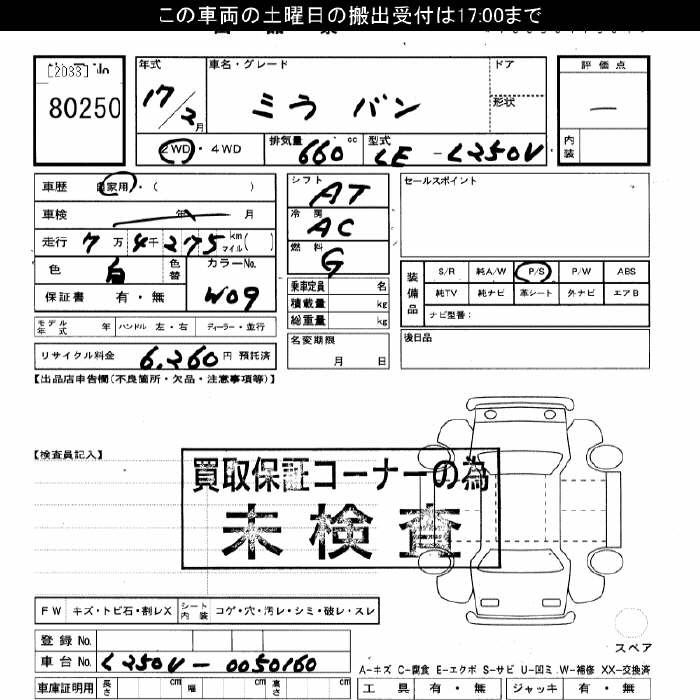 この車両の土曜日の搬出受付は17:00まで
[2033]
80250
年式 車名・グレード ドア 評価点
17/2月 ミラ バン 形状 —
2WD・4WD 排気量 660cc 型式 LE-L250V 内装
車歴 自家用・( ) シフト AT セールスポイント
車検 年 月 冷房 AC
走行 7万4千275 km マイル( ) 燃料 G
色 白 色替 カラーNo. W09
保証書 有・無
乗車定員 名
積載量 kg
総重量 kg
装備品 S/R 純A/W P/S P/W ABS
純TV 純ナビ 革シート 外ナビ エアB
ナビ型番:
モデル年式 年 ハンドル 左・右 ディーラー・並行
名変期限 月 日
後日品
リサイクル料金 6,260円 預託済
【出品店申告欄(不良箇所・欠品・注意事項等)】
【検査員記入】
買取保証コーナーの為
未検査
FW キズ・トビ石・割レX シート内装 コゲ・穴・汚レ・シミ・破レ・スレ
スペア
登録No.
車台No. L250V-0050160
A-キズ C-腐食 E-エクボ S-サビ U-凹ミ W-補修 XX-交換済
車庫証明用 長さ cm 幅 cm 高さ cm 工具 有・無 ジャッキ 有・無